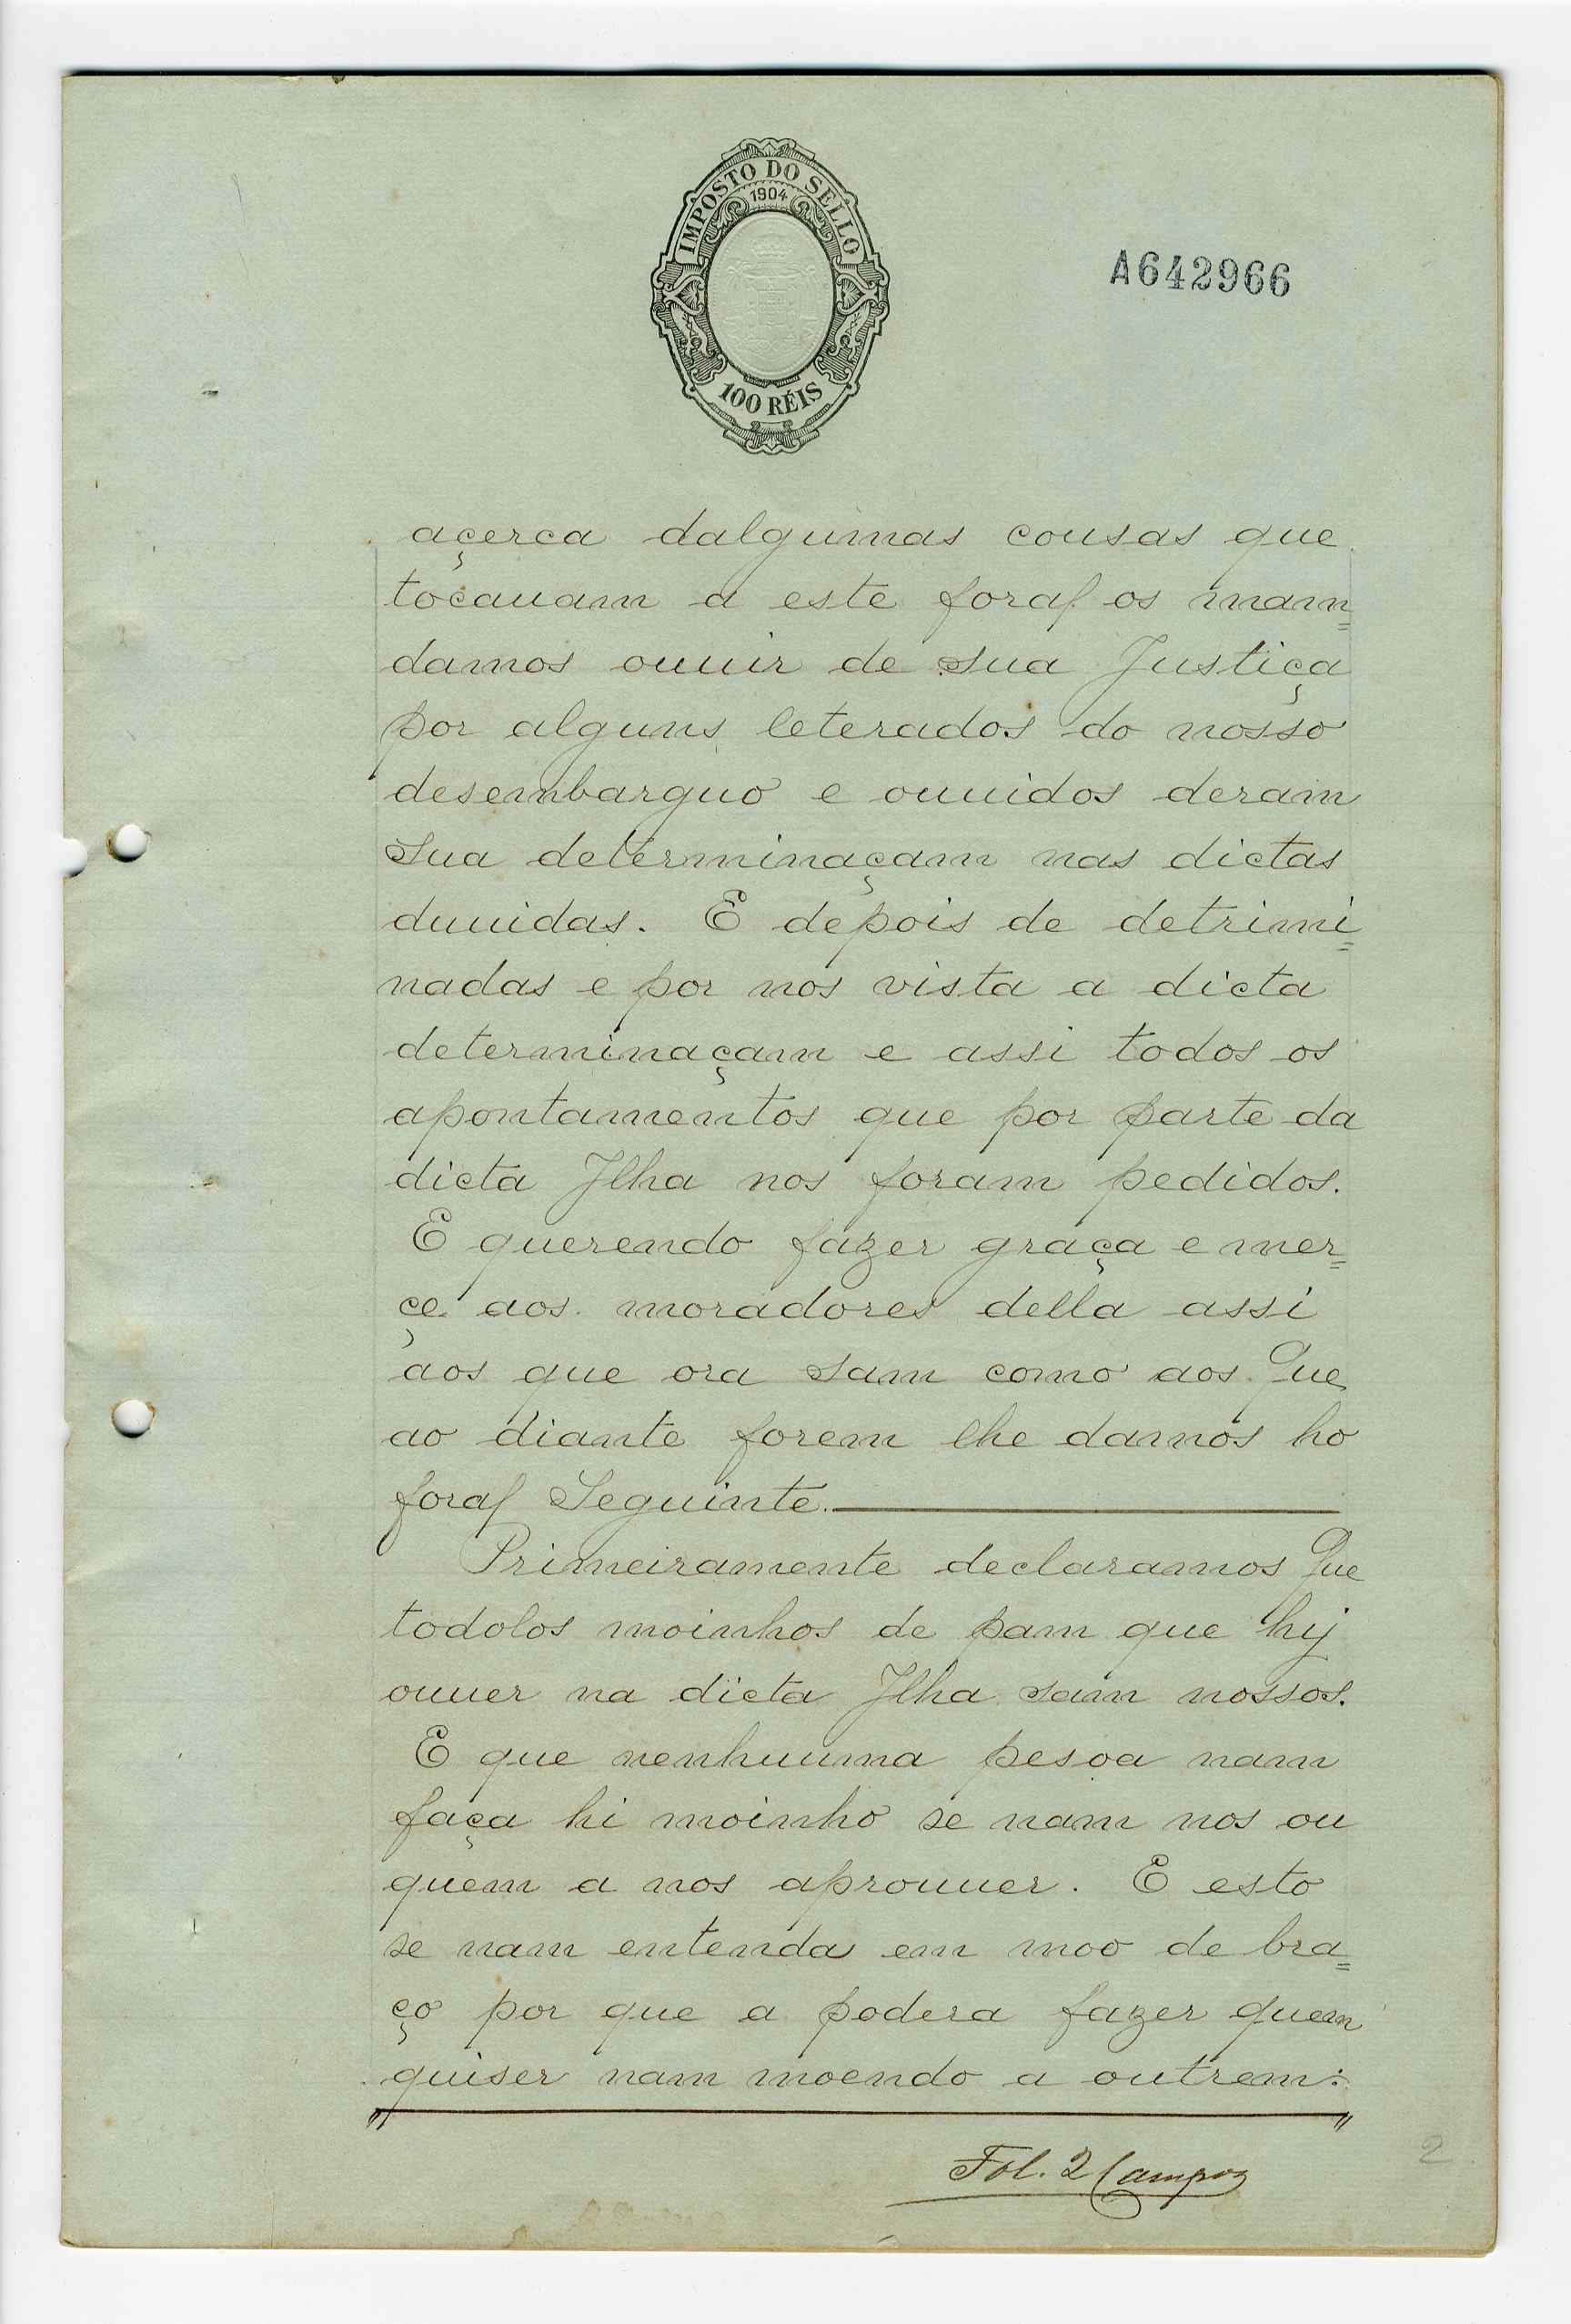 IMPOSTO DO SELLO
1904
100 RÉIS
A642966
açerca dalgumas cousas que
tocauam a este foral os mam=
damos ouuir de sua Justiça
por alguns leterados do nosso
desembarguo e ouuidos deram
sua determinaçam nas dictas
duuidas. E depois de detrimi=
nadas e por nos vista a dicta
determinaçam e assi todos os
apontamentos que por parte da
dicta Jlha nos foram pedidos.
E querendo fazer graça e mer=
çe aos moradores della assi
aos que ora sam como aos Que
ao diante forem lhe damos ho
foral Seguinte.
Primeiramente declaramos Que
todolos moinhos de pam que hij
ouuer na dicta Jlha sam nossos.
E que nenhuuma pesoa nam
faça hi moinho se nam nos ou
quem a nos aprouuer. E esto
se nam entenda em moo de bra=
ço por que a podera fazer quem
quiser nam moendo a outrem:
Fol. 2 Campos
2